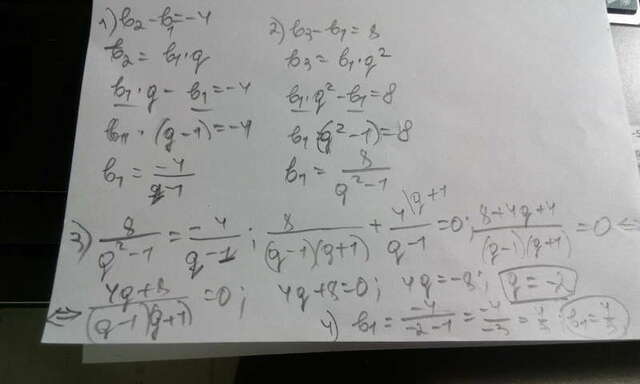 1) b₂ - b₁ = -4
b₂ = b₁·q
b₁·q - b₁ = -4
b₁·(q-1) = -4
b₁ = -4/q-1
2) b₃ - b₁ = 8
b₃ = b₁·q²
b₁·q² - b₁ = 8
b₁(q²-1) = 8
b₁ = 8/q²-1
3) 8/q²-1 = -4/q-1; 8/(q-1)(q+1) + 4\q+1/q-1 = 0; 8+4q+4/(q-1)(q+1) = 0 ⇔
⇔ 4q+8/(q-1)(q+1) = 0; 4q+8=0; 4q=-8; q=-2
4) b₁ = -4/-2-1 = -4/-3 = 4/3; b₁=4/3